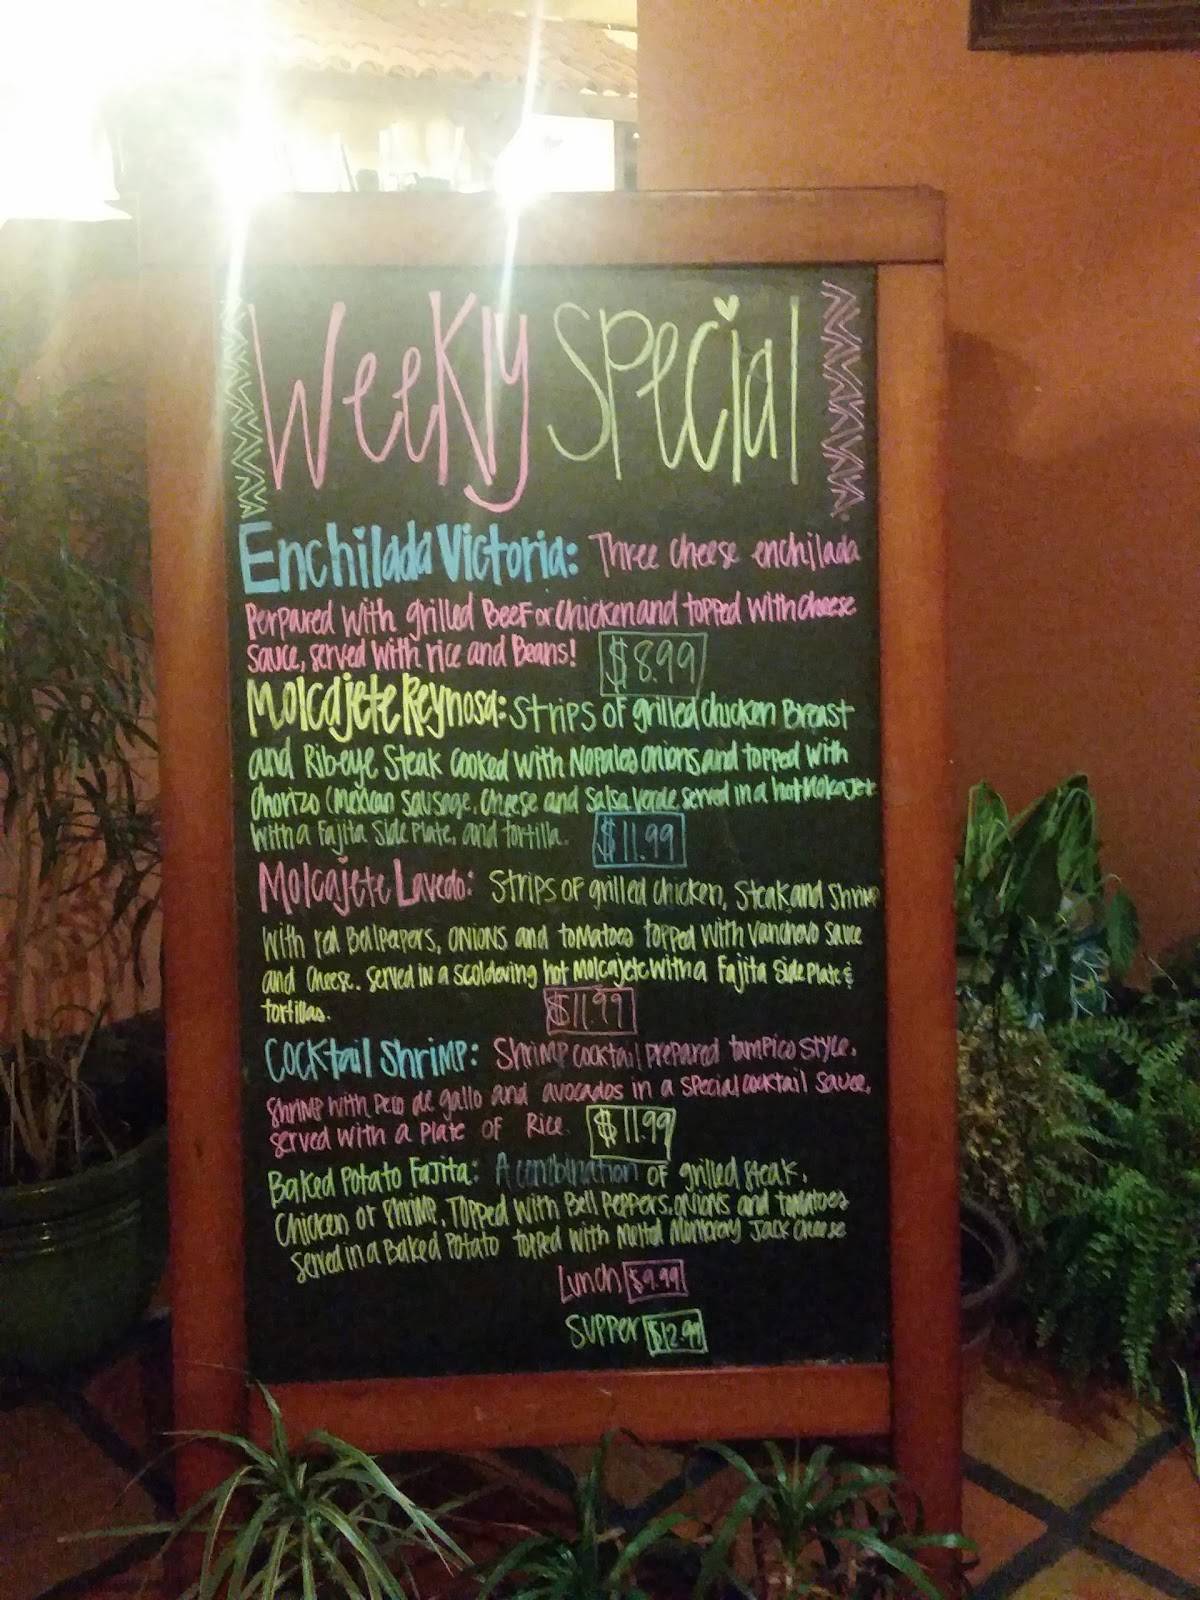 Weekly Special
Enchilada Victoria: Three cheese enchilada
Perpared with grilled Beef or Chicken and topped with cheese
Sauce, served with rice and Beans! $8.99
Molcajete Reynosa: Strips of grilled chicken Breast
and Rib-eye Steak cooked with Nopales onions and topped with
Chorizo (Mexican sausage, cheese and salsa verde served in a hot Molcajete
with a Fajita Side Plate, and tortilla. $11.99
Molcajete Lavedo: Strips of grilled chicken, Steak and Shrimp
with red Bellpepers, onions and tomatoes topped with sauce
and cheese. served in a hot Molcajete with a Fajita Side Plate &
tortillas. $11.99
Cocktail Shrimp: Shrimp cocktail prepared tampico style.
Shrimp with Pico de gallo and avocados in a special cocktail sauce,
served with a plate of Rice. $11.99
Baked Potato Fajita: A combination of grilled steak,
Chicken or shrimp, Topped with Bell Peppers, onions and tomatoes
Served in a Baked Potato topped with Melted Monterey Jack Cheese
Lunch $9.99
Supper $12.99